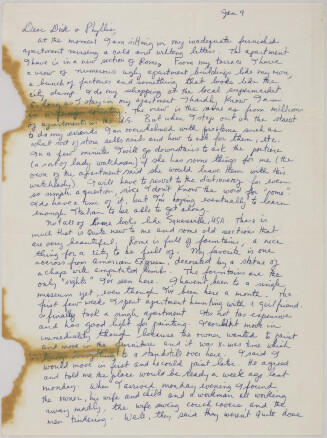 Jan 9
Dear Dick & Phyllis,
At the moment I am sitting in my inadequate furnished
apartment nursing a cold and writing letters. The apartment
I have is in a new section of Rome. From my terrace I have
a view of numerous ugly apartment buildings like my own,
a bunch of factories and something that looks like the
city dump. I do my shopping at the local supermarket.
So long as I stay in my apartment I hardly know I am
in a foreign country. The view is the same as from millions
of apartments in the US. But when I step out on the street
to do my errands I am overwhelmed with problems such as
what sort of store sells and how to ask for them etc.
In a few minutes I will go downstairs to ask the portera
(a sort of lady watchdog) if she has some things for me (the
owner of the apartment said she would leave them with this
watchlady). I will have to resort to the dictionary for even
so simple a question, since I don't know the word for "some".
I do have a time of it, but I'm hoping eventually to learn
enough Italian to be able to get along.
Not all of Rome looks like Squaresville, USA. There is
much that is quite new to me and some old sections that
are very beautiful. Rome is full of fountains, a nice
thing for a city to be full of. My favorite is one
across from American Express, decorated by a statue of
a chap with amputated limbs. The fountains are the
only "sights" I've seen here. I haven't been to a single
museum yet, even though I've been here a month. The
first few weeks I spent apartment hunting with a girl friend.
I finally took a single apartment. It's not too expensive
and has good light for painting. I couldn't move in
immediately though because the owner wanted to paint
and move in the furniture and it was X-mas time which
everything to a standstill over here. I said I
would move in first and he could paint later. He agreed
and told me the place would be ready a week ago last
Monday. When I arrived Monday evening I found
the owner, his wife and child and a workman all working
away madly, the wife sewing couch covers and the
men tinkering. Well, they said they weren't quite done